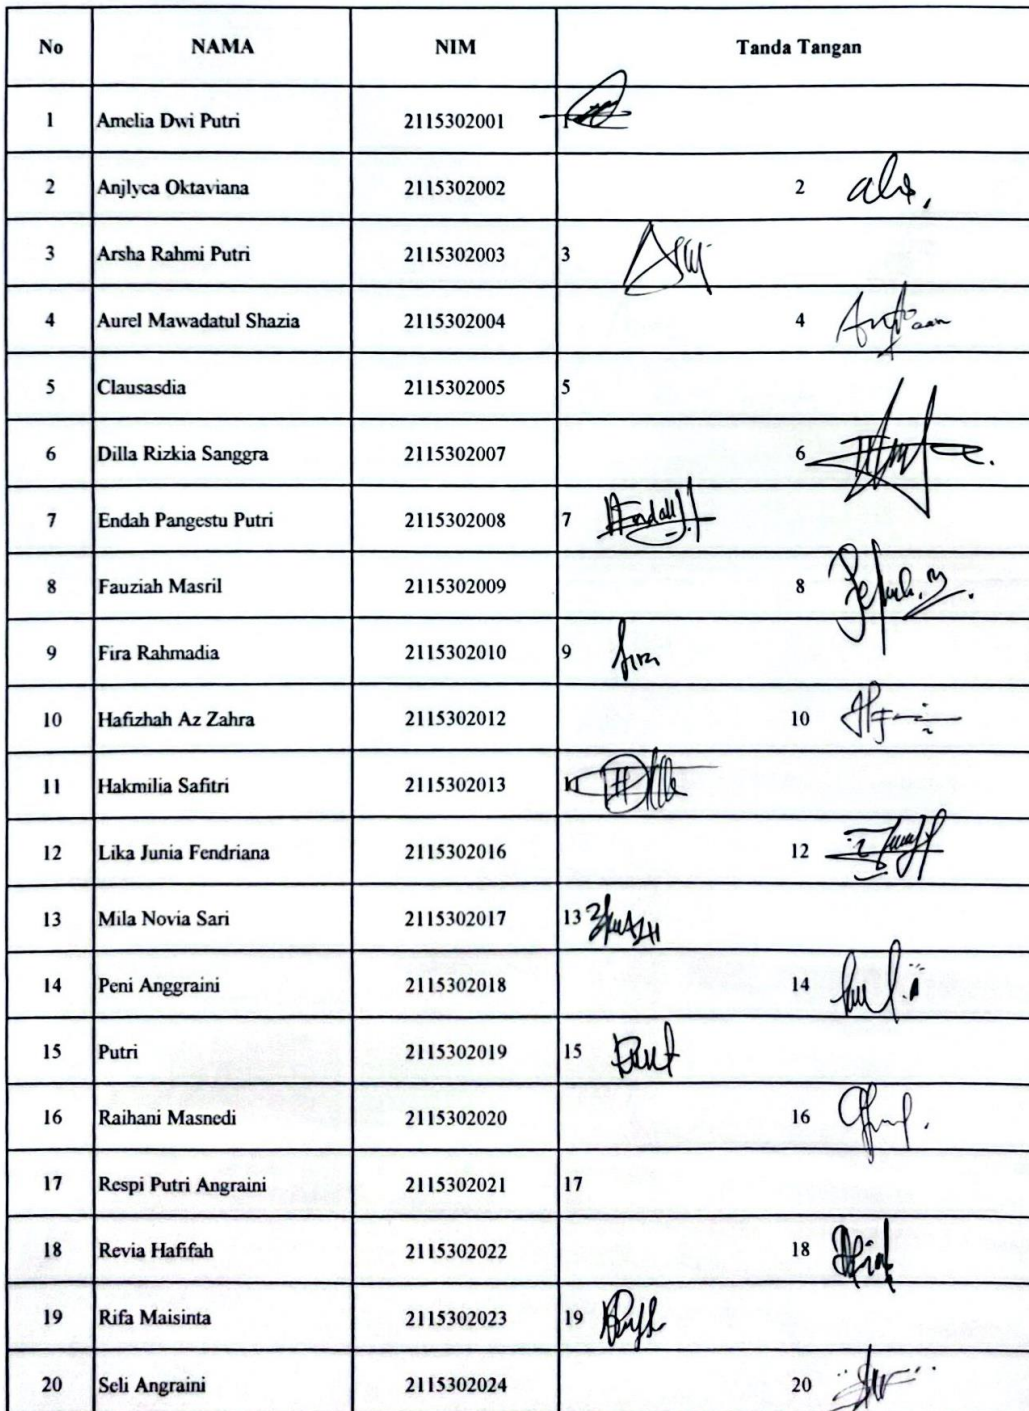 No NAMA NIM Tanda Tangan
1 Amelia Dwi Putri 2115302001 1
2 Anjlyca Oktaviana 2115302002 2
3 Arsha Rahmi Putri 2115302003 3
4 Aurel Mawadatul Shazia 2115302004 4
5 Clausasdia 2115302005 5
6 Dilla Rizkia Sanggra 2115302007 6
7 Endah Pangestu Putri 2115302008 7
8 Fauziah Masril 2115302009 8
9 Fira Rahmadia 2115302010 9
10 Hafizhah Az Zahra 2115302012 10
11 Hakmilia Safitri 2115302013 11
12 Lika Junia Fendriana 2115302016 12
13 Mila Novia Sari 2115302017 13
14 Peni Anggraini 2115302018 14
15 Putri 2115302019 15
16 Raihani Masnedi 2115302020 16
17 Respi Putri Angraini 2115302021 17
18 Revia Hafifah 2115302022 18
19 Rifa Maisinta 2115302023 19
20 Seli Angraini 2115302024 20